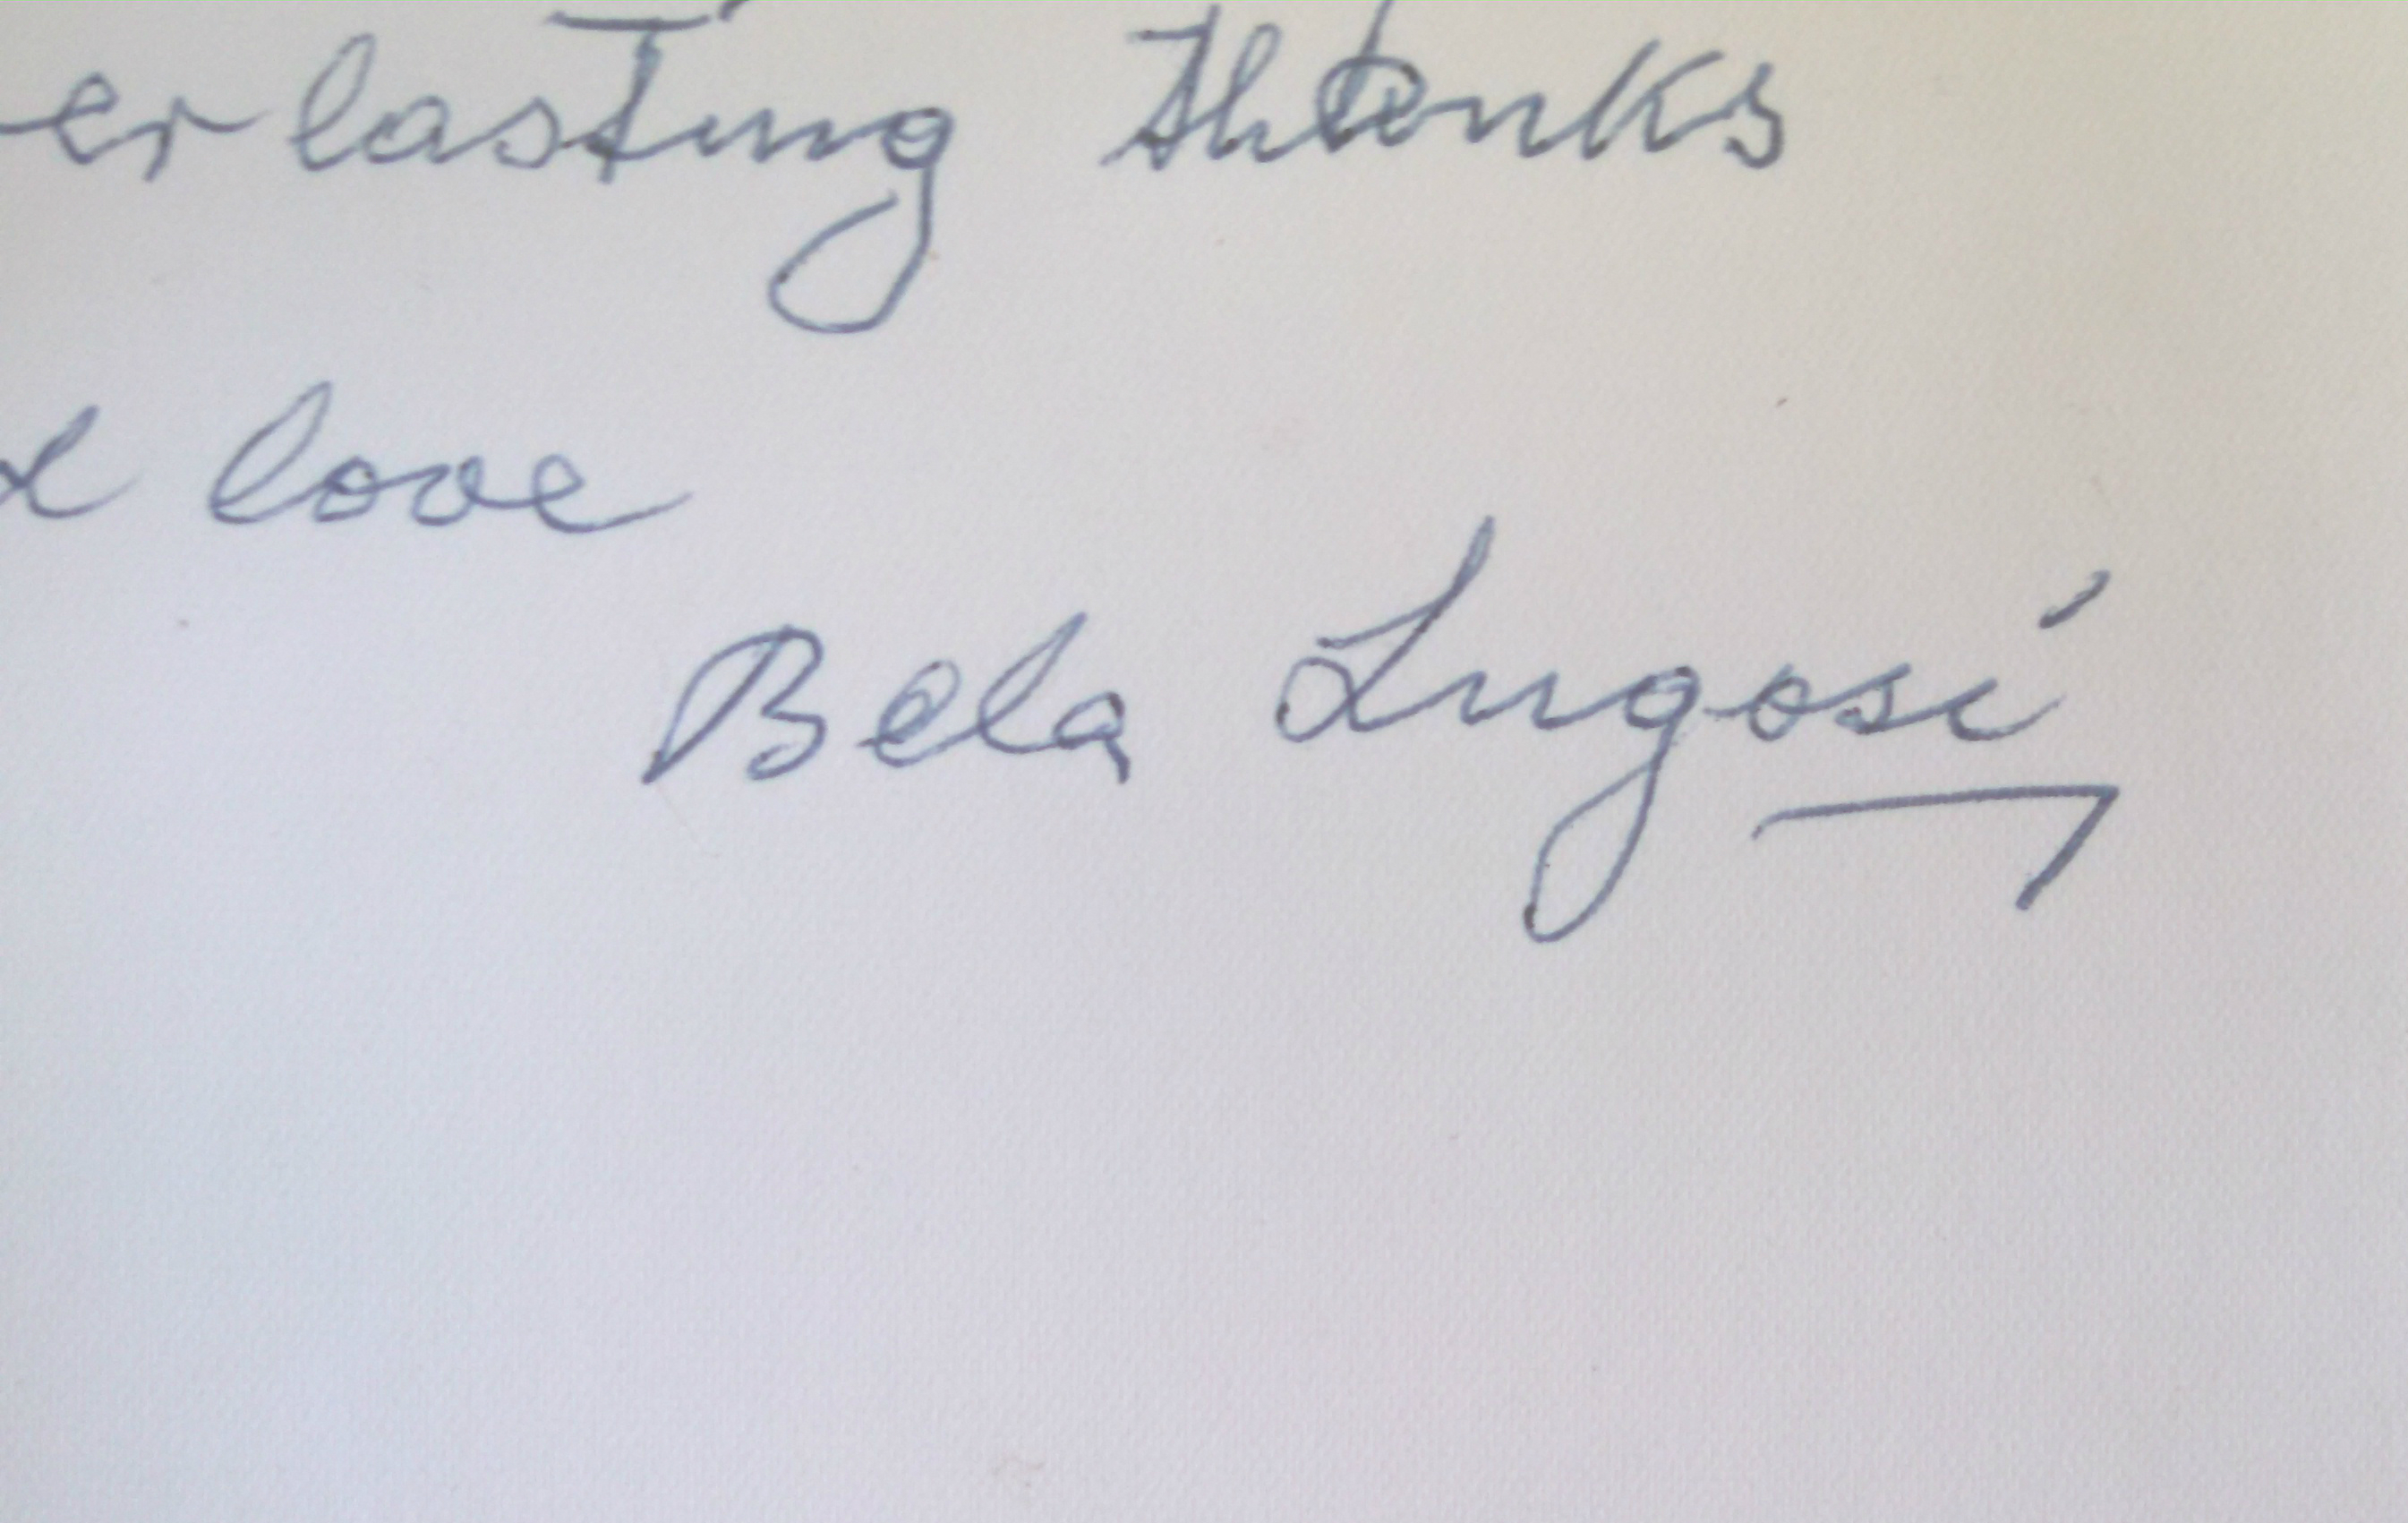 erlasting thanks
& love
Bela Lugosi